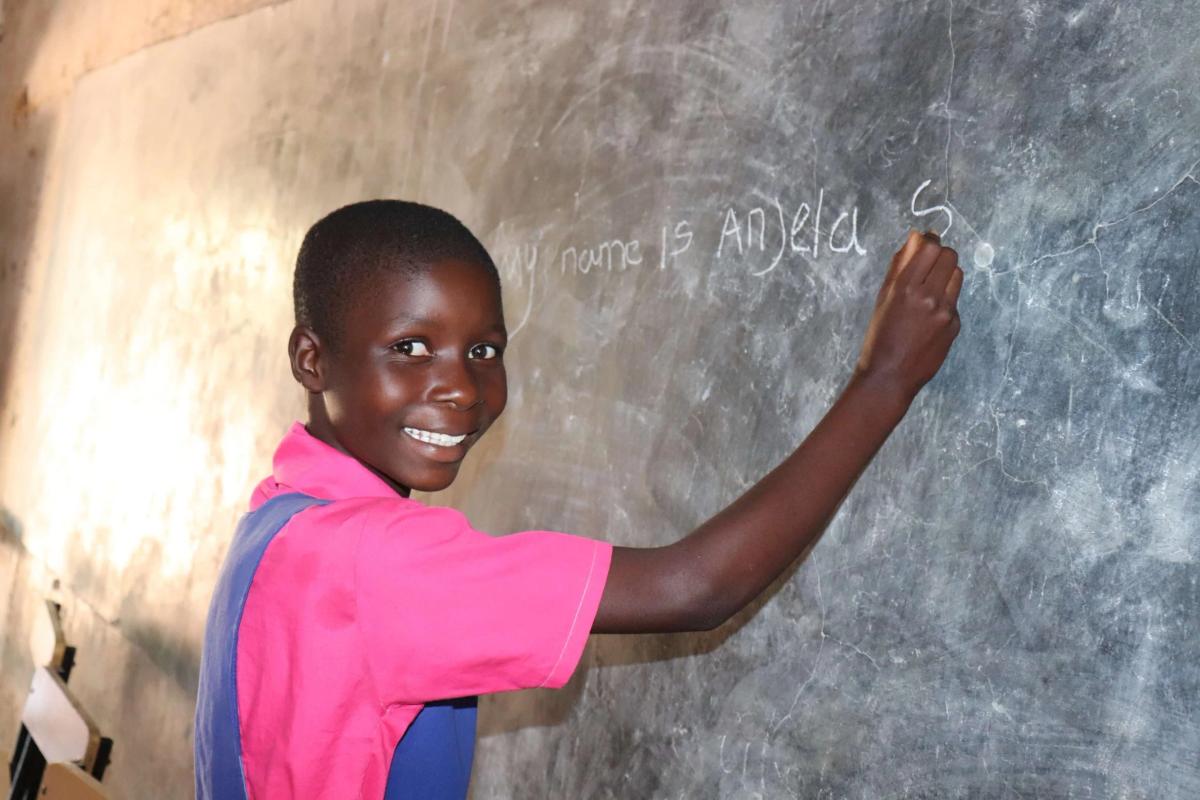 My name is Anjela S